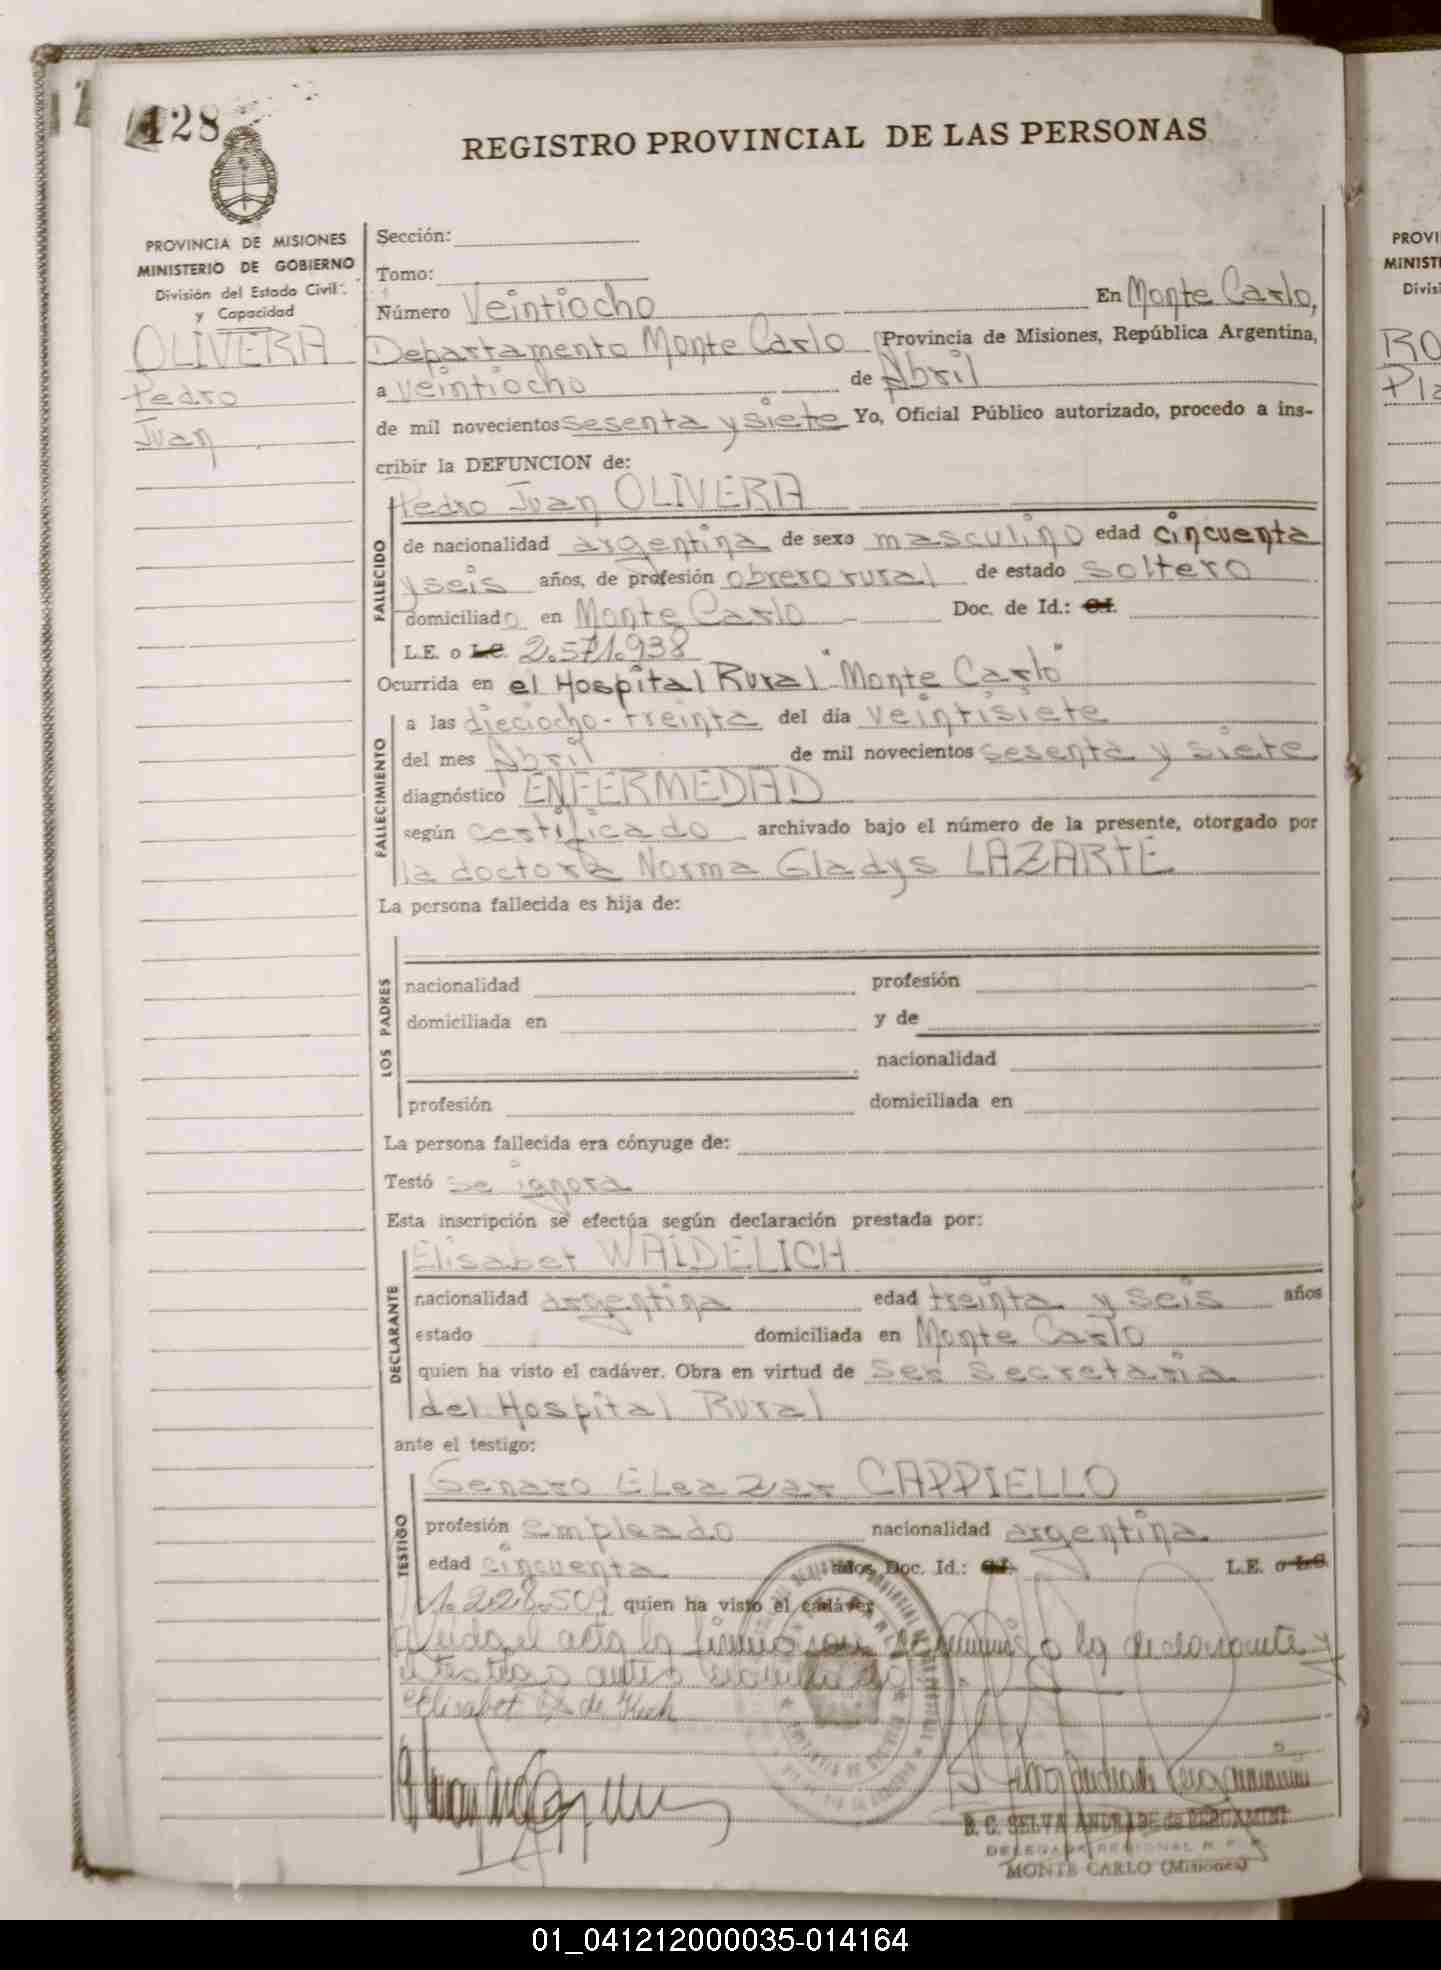 128
REGISTRO PROVINCIAL DE LAS PERSONAS
PROVINCIA DE MISIONES
MINISTERIO DE GOBIERNO
División del Estado Civil
y Capacidad
OLIVERA
Pedro
Juan
Sección:
Tomo:
Número Veintiocho En Monte Carlo,
Departamento Monte Carlo Provincia de Misiones, República Argentina,
a veintiocho de Abril
de mil novecientos sesenta y siete Yo, Oficial Público autorizado, procedo a ins-
cribir la DEFUNCION de:
FALLECIDO
Pedro Juan OLIVERA
de nacionalidad argentina de sexo masculino edad cincuenta
y seis años, de profesión obrero rural de estado soltero
domiciliado en Monte Carlo Doc. de Id.: C.I.
L.E. o L.C. 2.571.938
Ocurrida en el Hospital Rural "Monte Carlo"
FALLECIMIENTO
a las dieciocho-treinta del día veintisiete
del mes Abril de mil novecientos sesenta y siete
diagnóstico ENFERMEDAD
según certificado archivado bajo el número de la presente, otorgado por
la doctora Norma Gladys LAZARTE
La persona fallecida es hija de:
LOS PADRES
nacionalidad profesión
domiciliada en y de
nacionalidad
profesión domiciliada en
La persona fallecida era cónyuge de:
Testó se ignora
Esta inscripción se efectúa según declaración prestada por:
DECLARANTE
Elisabet WAIDELICH
nacionalidad argentina edad treinta y seis años
estado domiciliada en Monte Carlo
quien ha visto el cadáver. Obra en virtud de ser secretaria
del Hospital Rural
ante el testigo:
TESTIGO
Genaro Eleazar CAPPIELLO
profesión empleado nacionalidad argentina
edad cincuenta años, Doc. Id.: C.I. L.E. o L.C.
1.228.509 quien ha visto el cadáver
el acta la conmigo la declarante y
antes
Elisabet de
B. C. SELVA ANDRADE de BERGAMINI
DELEGADA REGIONAL R. P. P.
MONTE CARLO (Misiones)
PROVI
MINIST
Divis
RO
Pla
01_041212000035-014164